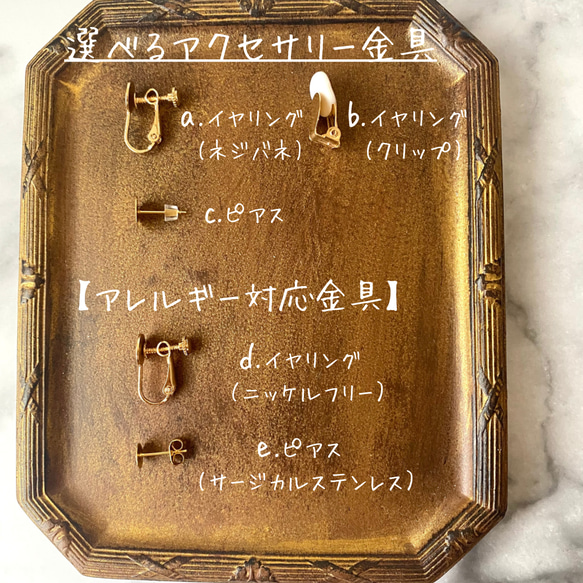 選べるアクセサリー金具
a.イヤリング
(ネジバネ)
b.イヤリング
(クリップ)
c.ピアス
【アレルギー対応金具】
d.イヤリング
(ニッケルフリー)
e.ピアス
(サージカルステンレス)